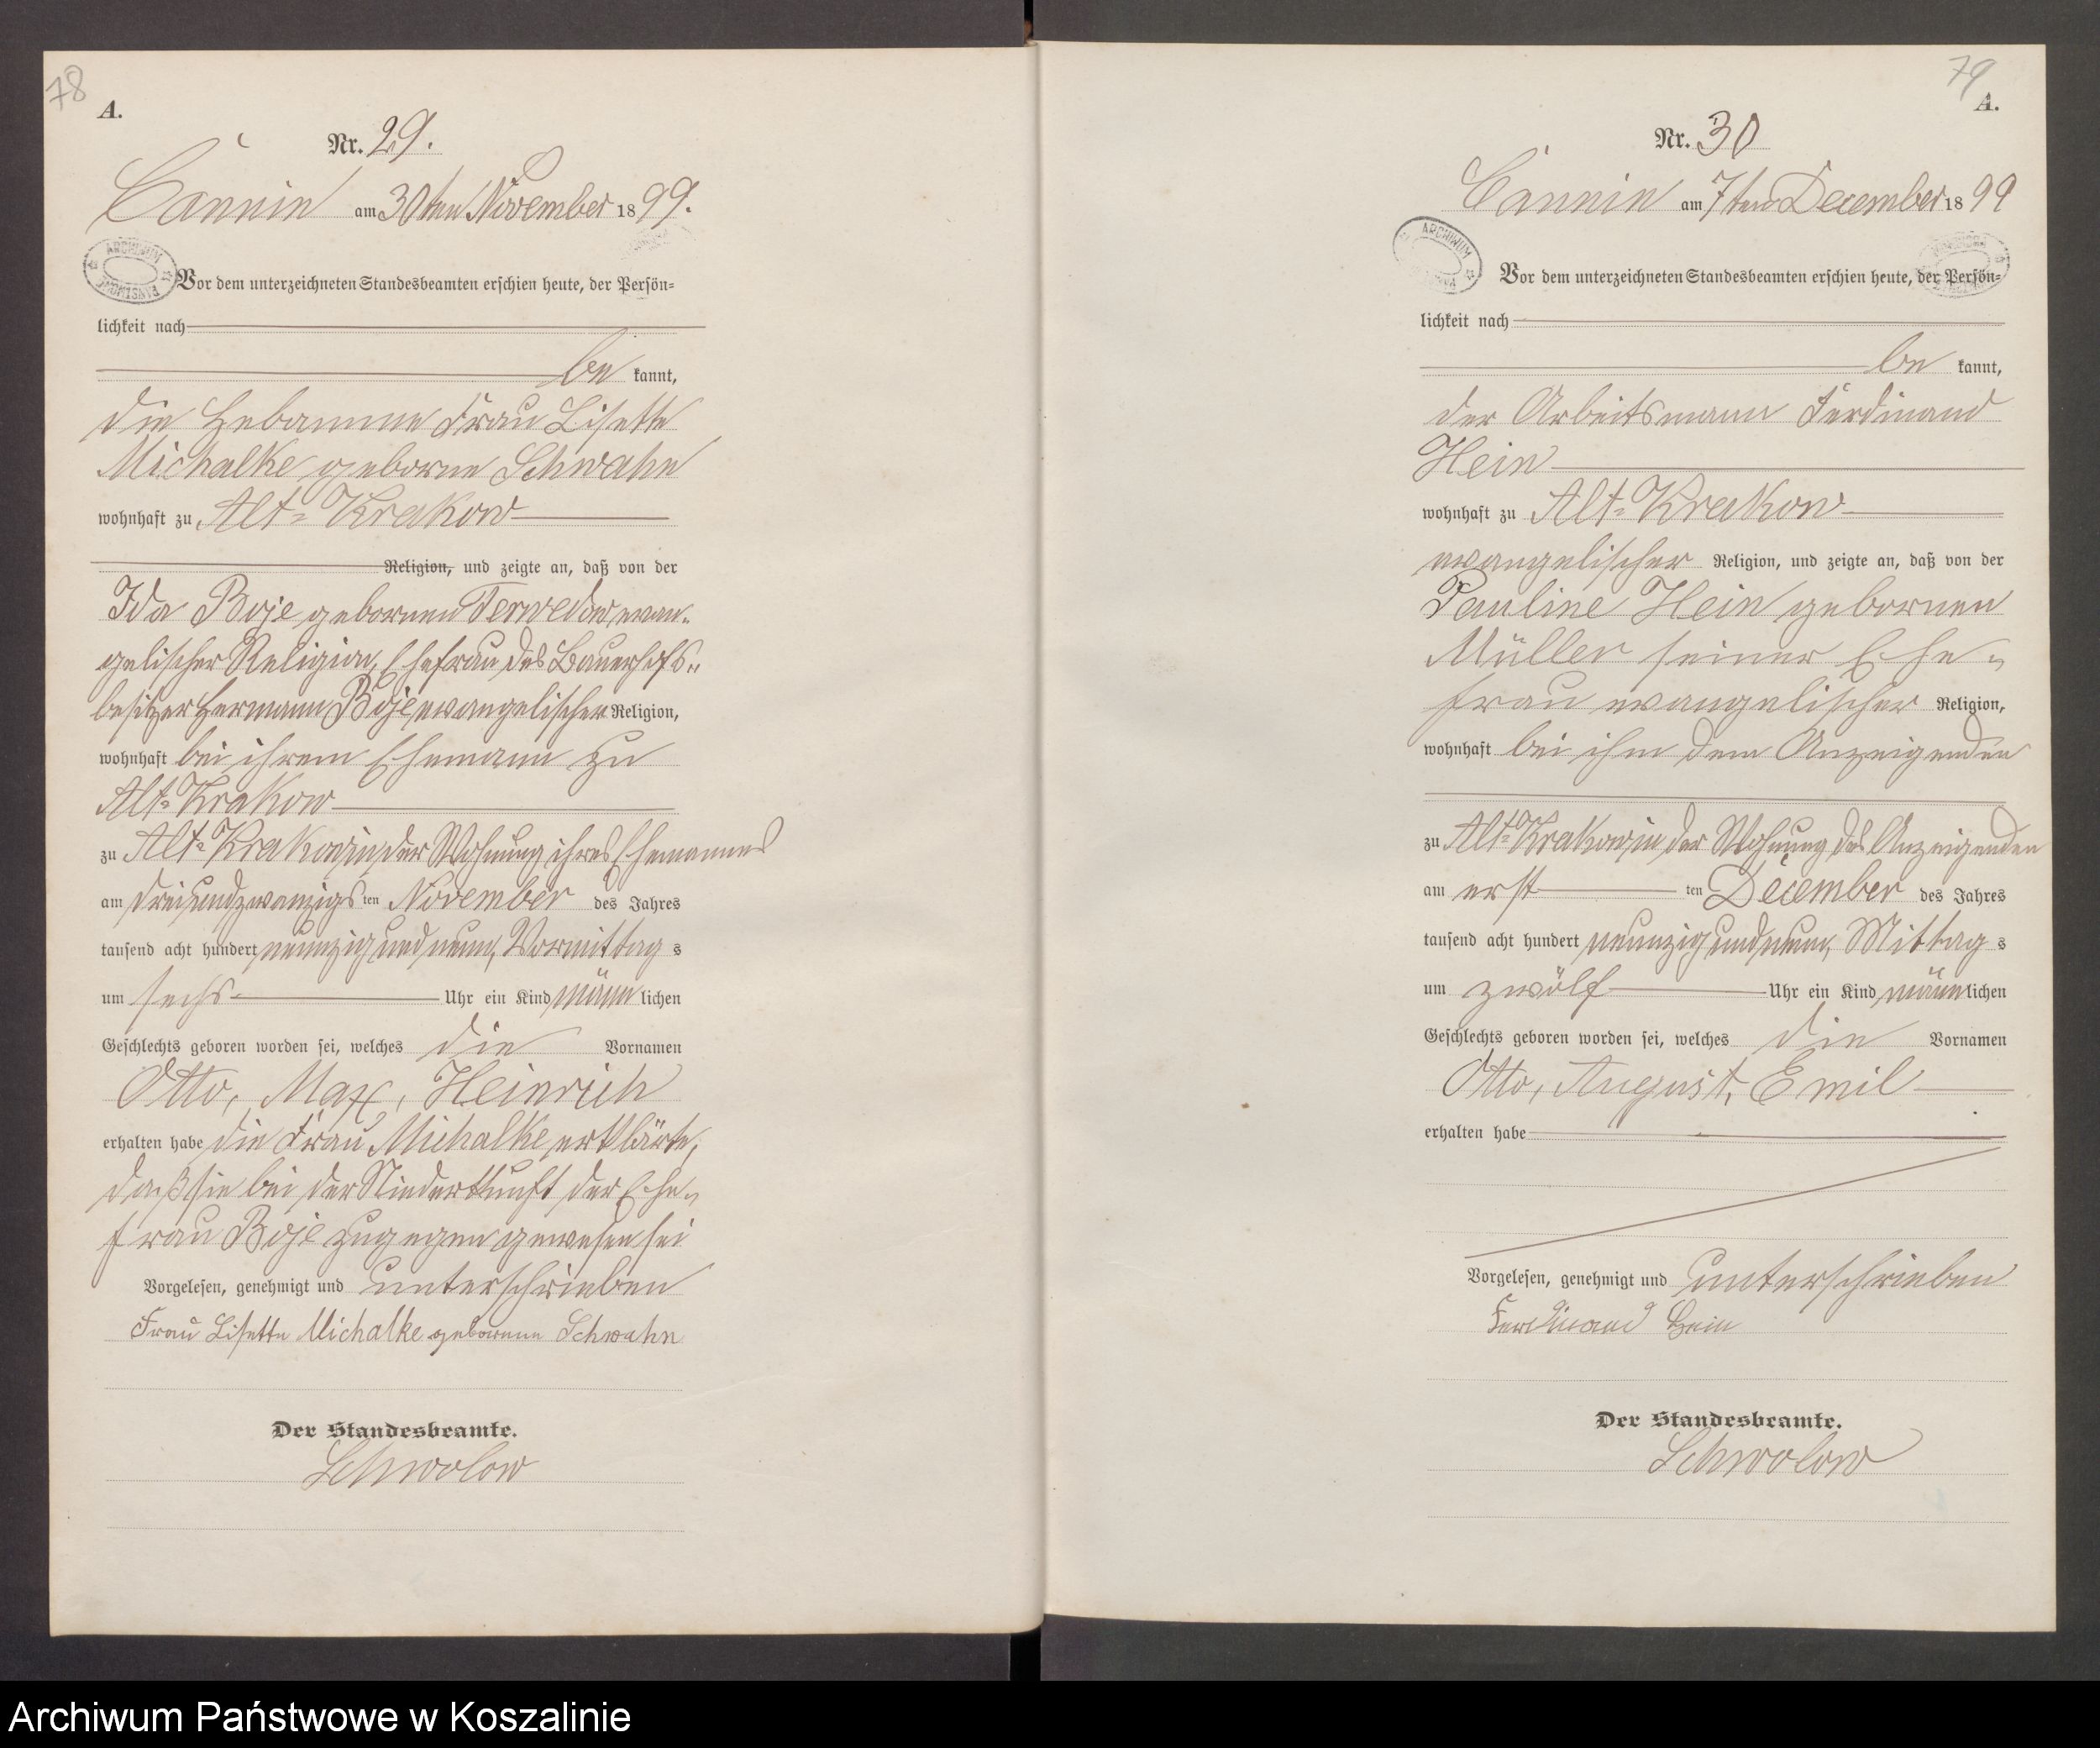 78
A.
Nr. 29.
Cannin am 30ten November 1899.
ARCHIWUM
Vor dem unterzeichneten Standesbeamten erschien heute, der Persön-
lichkeit nach
be kannt,
die Hebamme Frau Lisette
Michalke geborne Schwahn
wohnhaft zu Alt-Krakow
Religion, und zeigte an, daß von der
Ida Boje gebornen Terwedow evan-
gelischer Religion, Ehefrau des Bauerhofs-
besitzer Hermann Boje evangelischer Religion,
wohnhaft bei ihrem Ehemann zu
Alt-Krakow
zu Alt-Krakow in der Wohnung ihres Ehemannes
am dreiundzwanzigs ten November des Jahres
tausend acht hundert neunzig und neun, Vormittag s
um sechs Uhr ein Kind männ lichen
Geschlechts geboren worden sei, welches die Vornamen
Otto, Max, Heinrich
erhalten habe die Frau Michalke erklärte,
daß sie bei der Niederkunft der Ehe-
frau Boje zugegen gewesen sei
Vorgelesen, genehmigt und unterschrieben
Frau Lisette Michalke geborene Schwahn
Der Standesbeamte.
Schwolow
79
A.
Nr. 30
Cannin am 7ten December 1899
ARCHIWUM
Vor dem unterzeichneten Standesbeamten erschien heute, der Persön-
lichkeit nach
be kannt,
der Arbeitsmann Ferdinand
Hein
wohnhaft zu Alt-Krakow
evangelischer Religion, und zeigte an, daß von der
Pauline Hein gebornen
Müller seiner Ehe-
frau evangelischer Religion,
wohnhaft bei ihm dem Anzeigenden
zu Alt-Krakow in der Wohnung des Anzeigenden
am erst ten December des Jahres
tausend acht hundert neunzig und neun, Mittag s
um zwölf Uhr ein Kind männ lichen
Geschlechts geboren worden sei, welches die Vornamen
Otto, August, Emil
erhalten habe
Vorgelesen, genehmigt und unterschrieben
Ferdinand Hein
Der Standesbeamte.
Schwolow
Archiwum Państwowe w Koszalinie